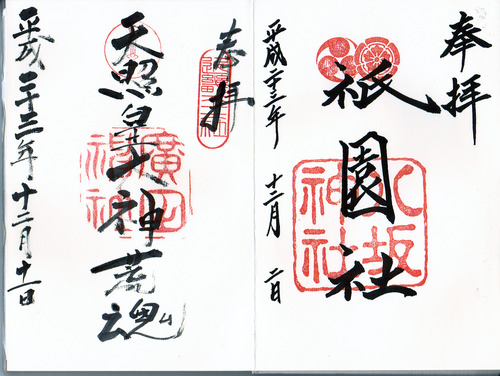 奉拝
祇園社
八坂神社
平成二十三年 十二月 二日
奉拝
天照皇大神荒魂
廣田神社
平成二十三年十二月十一日